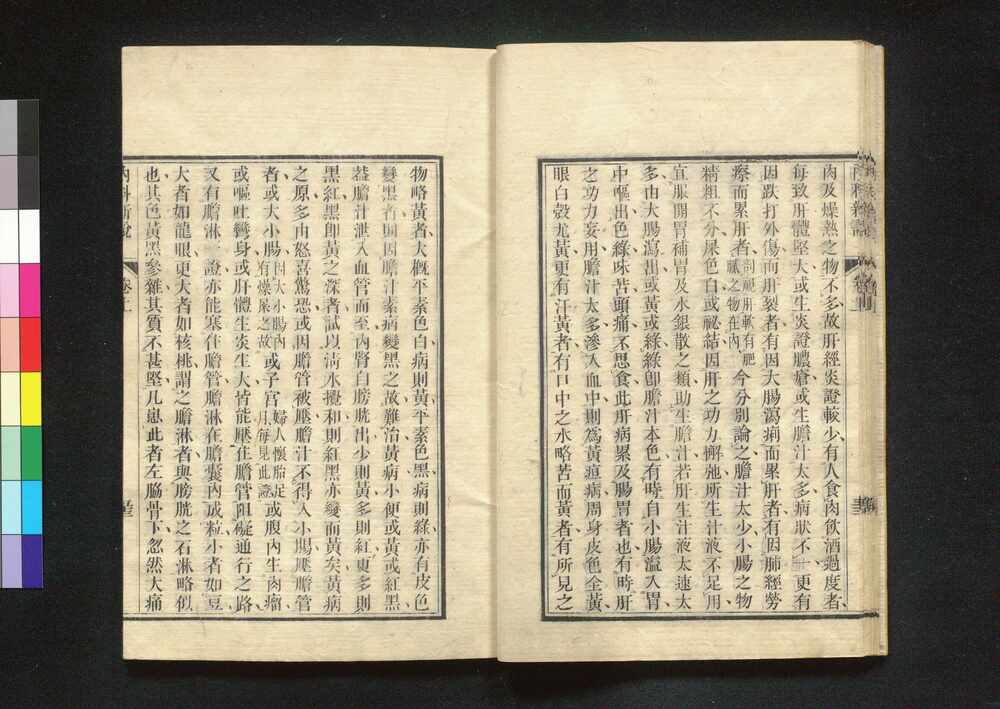 肉及燥熱之物不多故肝經炎證較少有人食肉飲酒過度者
每致肝體堅大或生炎證膿瘡或生膽汁太多病狀不一更有
因跌打外傷而肝裂者有因大腸瀉痢而累肝者有因肺經勞
瘵而累肝者剖視肝軟有肥膩之物在內今分別論之膽汁太少小腸之物
精粗不分屎色白或祕結因肝之功力懈弛所生汁液不足用
宜服開胃補胃及水銀散之類助生膽汁若肝生汁液太速太
多由大腸瀉出或黃或綠綠卽膽汁本色有時自小腸溢入胃
中嘔出色綠味苦頭痛不思食此肝病累及腸胃者也有時肝
之功力妄用膽汁太多滲入血中則爲黃疸病周身皮色全黃
眼白殼尤黃更有汗黃者有口中之水略苦而黃者有所見之
物略黃者大概平素色白病則黃平素色黑病則綠亦有皮色
變黑者因膽汁素病變黑之故難治黃病小便或黃或紅黑
蓋膽汁泄入血管而至內腎自膀胱出少則黃多則紅更多則
黑紅黑卽黃之深者試以淸水攪和則紅黑亦變而黃矣黃病
之原多由怒喜驚恐或因膽管被壓膽汁不得入小腸壓膽管
者或大小腸因大小腸內有燥屎之故或子宮婦人懷胎足月每見此證或腹內生肉瘤
或嘔吐彎身或肝體生炎生大皆能壓住膽管阻礙通行之路
又有膽淋一證亦能塞住膽管膽淋在膽囊內成粒小者如豆
大者如龍眼更大者如核桃謂之膽淋者與膀胱之石淋略似
也其色黃黑參雜其質不甚堅凡患此者左脇骨下忽然大痛
內科新說